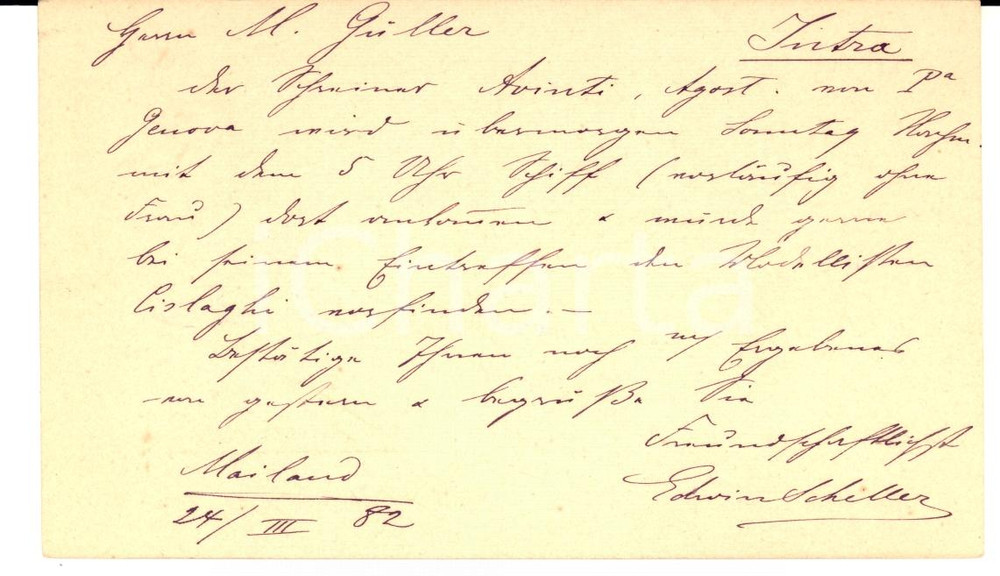 Herrn M. Güller
Intra
der Schreiner Avinti, Agost. von Pª
Genova wird übermorgen Sonntag Nachm.
mit dem 5 Uhr Schiff (vorläufig ohne
Frau) dort ankom̅en & würde gerne
bei seinem Eintreffen den Modellisten
Cislaghi vorfinden. —
Bestätige Ihnen noch m/ Ergebenes
von gestern & begrüße Sie
Freundschaftlichst
Edwin Scheller
Mailand
24/III 82
iCharta